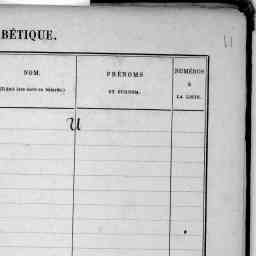 BÉTIQUE.
11
NOM.
PRÉNOMS
ET SURNOM.
NUMÉROS
À
LA LISTE.
U